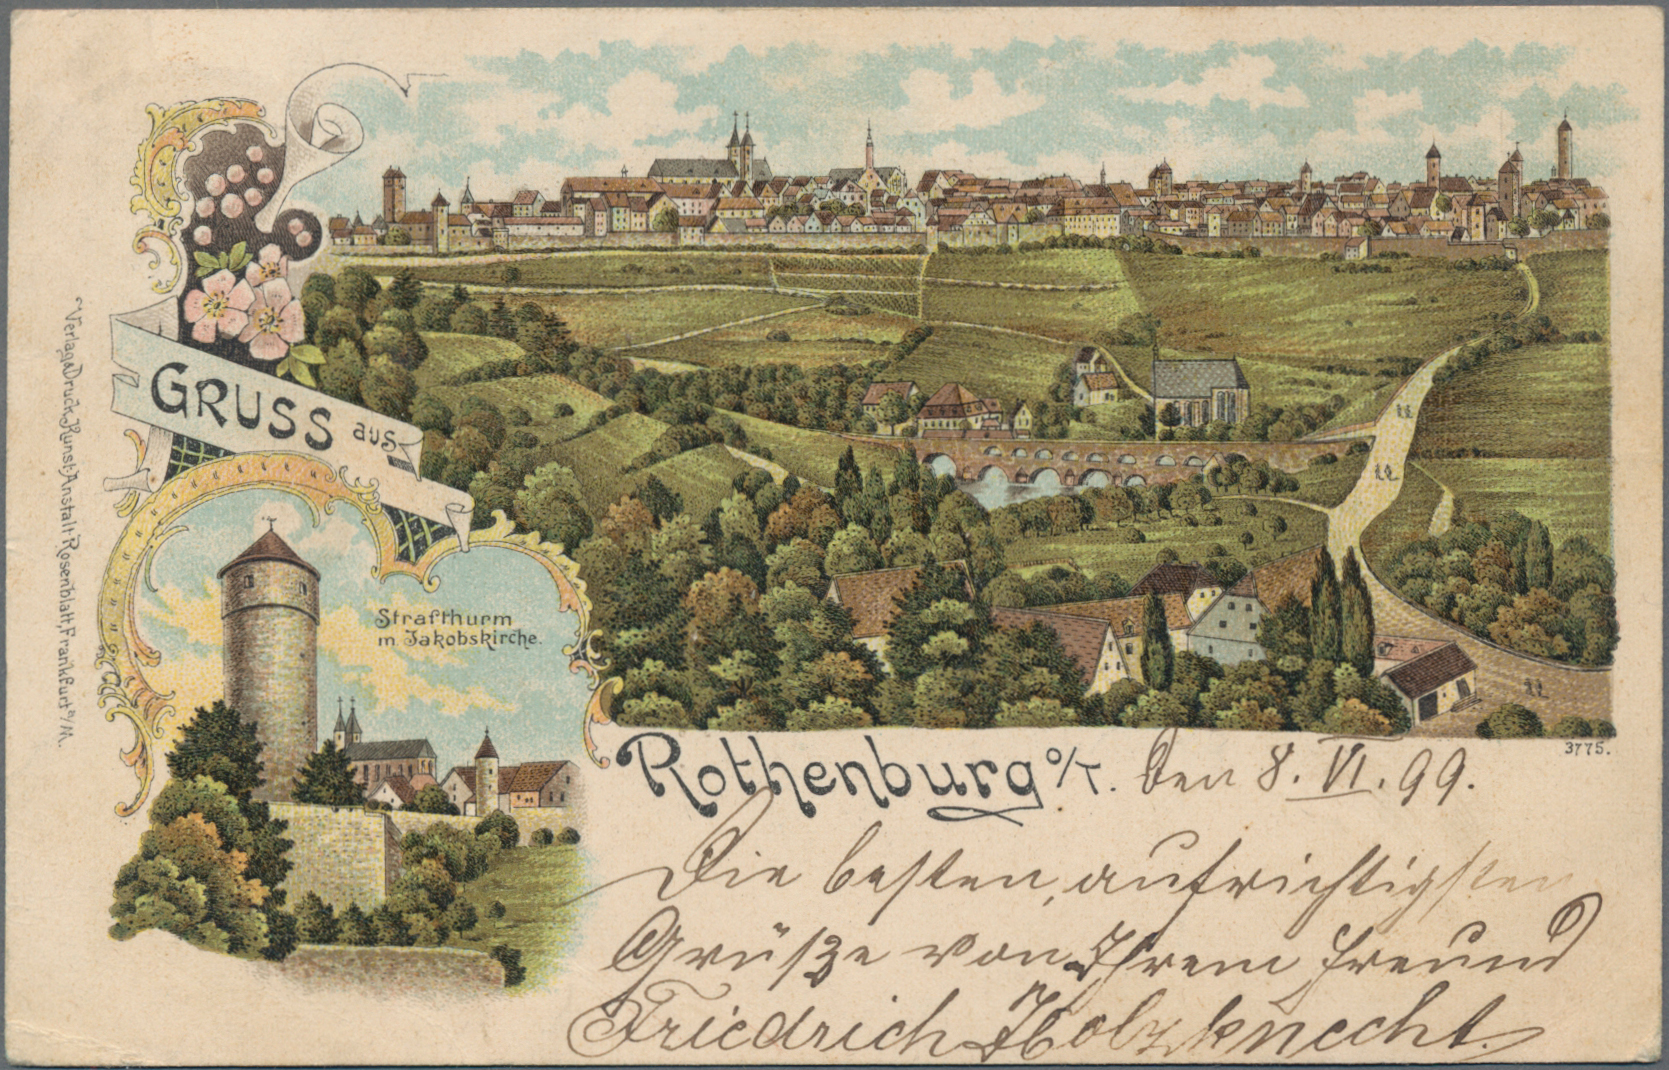 GRUSS aus
Strafthurm
m. Jakobskirche.
Verlag & Druck Kunst-Anstalt Rosenblatt, Frankfurt a/M.
3775.
Rothenburg o/T. den 8. VI. 99.
Die besten, aufrichtigsten
Grüße von Ihrem Freund
Friedrich Holzknecht.